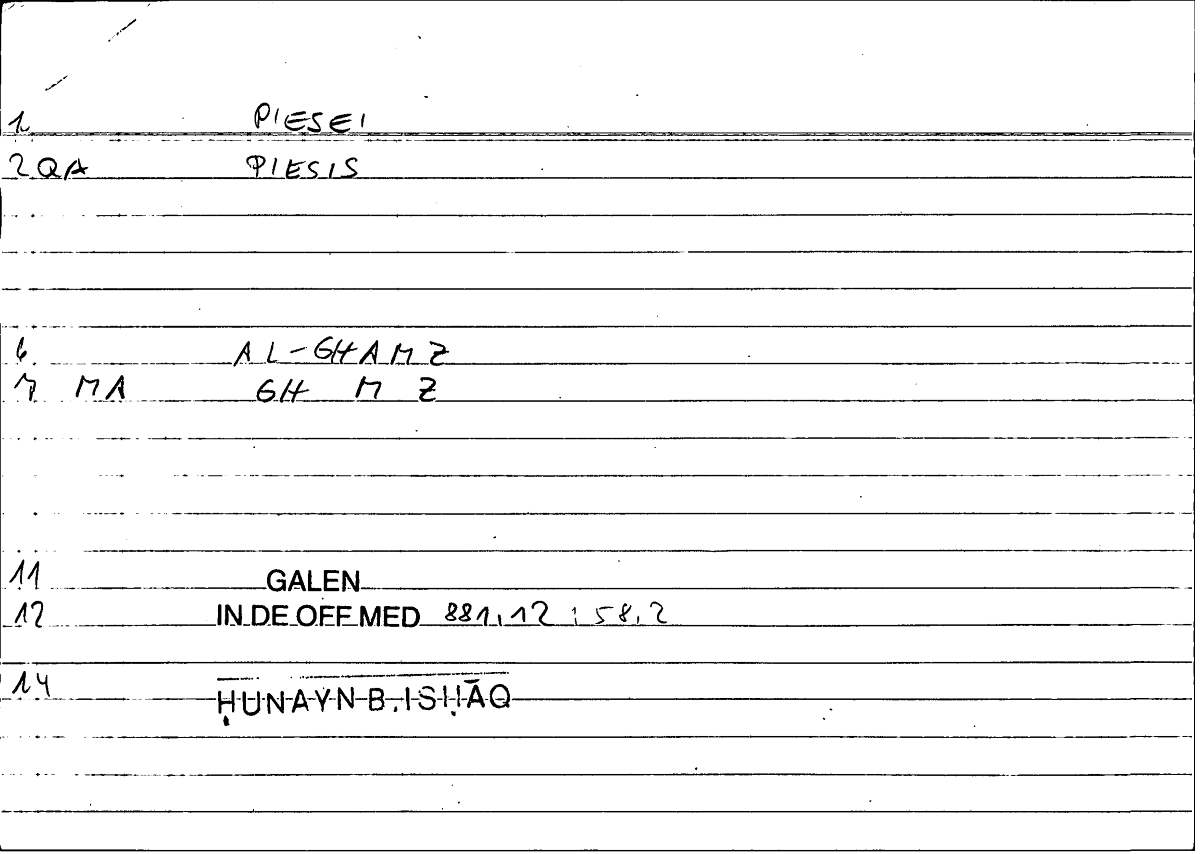 1. PIESEI
2 QA PIESIS
6. AL-GHAMZ
7. MA GH M Z
11 GALEN
12 IN DE OFF MED 881,12 ; 58,2
14 ḤUNAYN B. ISḤĀQ